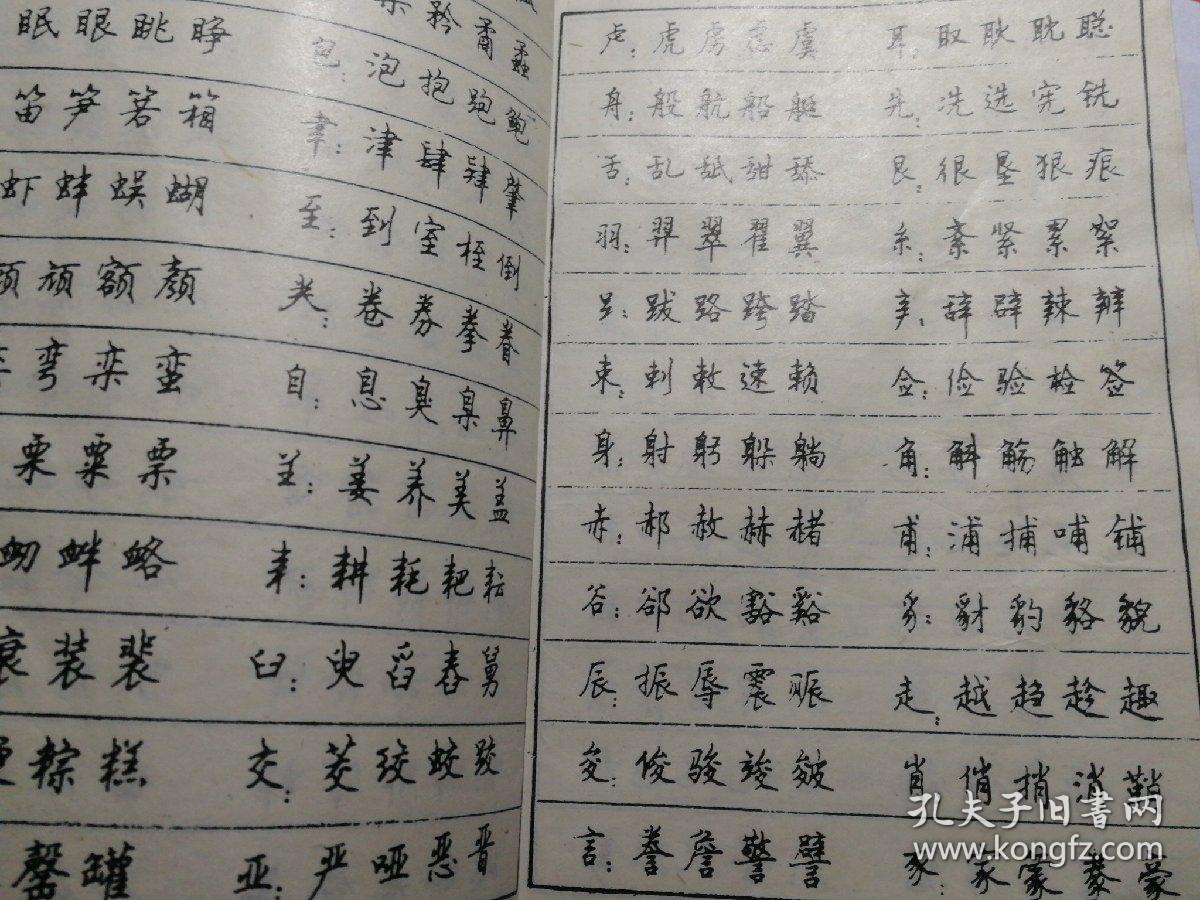 眠眼眺睁
笛笋箬箱
虾蚌蜈蝴
顽额颜
弯栾蛮
栗粟票
蚌蛒
装裴
粽糕
罄罐
矜矞蟊
包：泡抱跑鲍
聿：津肆肄肇
至：到室桎倒
卷券拳眷
自：息臭臬鼻
姜养美盖
耒：耕耗耙耘
臼：臾舀舂舅
交：茭绞蛟跤
亚：严哑恶晋
虎虏虑虞
耳：取耿耽聪
舟：般航船艇
先：冼选宪铣
舌：乱舐甜舔
艮：很垦狠痕
羽：羿翠翟翼
糸：紊紧累絮
跋路跨踏
辛：辞辟辣辨
束：刺敕速赖
佥：俭验检签
身：射躬躲躺
角：斛觞触解
赤：郝赦赫赭
甫：浦捕哺铺
谷：郤欲豁谿
豸：豺豹貉貌
辰：振辱震赈
走：越趋趁趣
夋：俊骏竣皴
肖：俏捎消鞘
言：誊詹警譬
孔夫子旧书网
www.kongfz.com